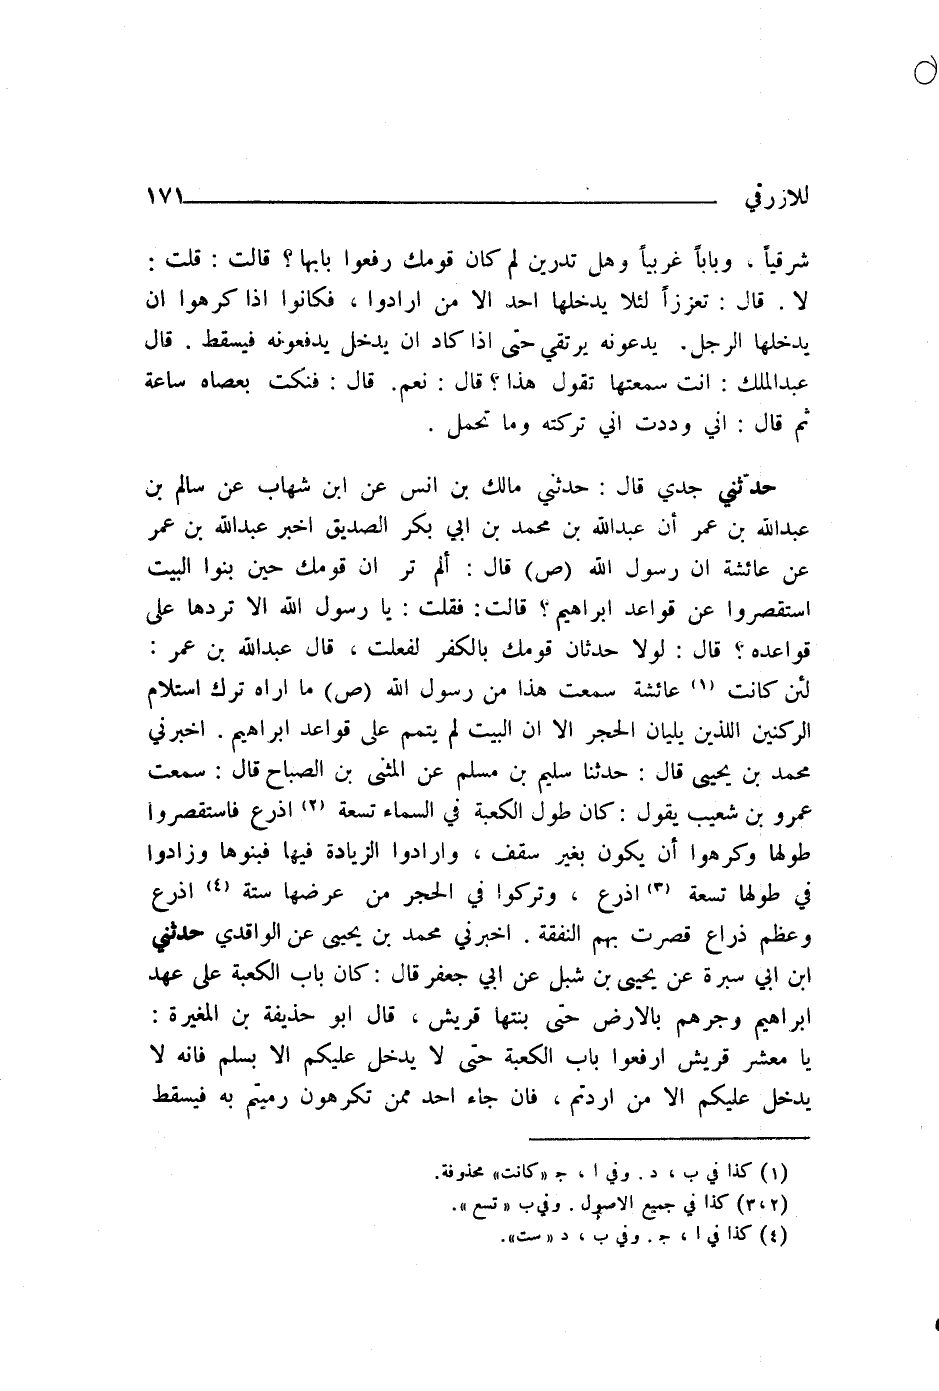 للازرقي ١٧١
شرقياً ، وباباً غربياً وهل تدرين لم كان قومك رفعوا بابها ؟ قالت : قلت :
لا . قال : تعززاً لئلا يدخلها احد الا من ارادوا ، فكانوا اذا كرهوا ان
يدخلها الرجل. يدعونه يرتقي حتّى اذا كاد ان يدخل يدفعونه فيسقط . قال
عبدالملك : انت سمعتها تقول هذا ؟ قال : نعم. قال : فنكت بعصاه ساعة
ثم قال : اني وددت اني تركته وما تحمل .
حدّثني جدي قال : حدثني مالك بن انس عن ابن شهاب عن سالم بن
عبدالله بن عمر أن عبدالله بن محمد بن ابي بكر الصديق اخبر عبدالله بن عمر
عن عائشة ان رسول الله (ص) قال : ألم تر ان قومك حين بنوا البيت
استقصروا عن قواعد ابراهيم ؟ قالت: فقلت : يا رسول الله الا تردها على
قواعده ؟ قال : لولا حدثان قومك بالكفر لفعلت ، قال عبدالله بن عمر :
لئن كانت (١) عائشة سمعت هذا من رسول الله (ص) ما اراه ترك استلام
الركنين اللذين يليان الحجر الا ان البيت لم يتمم على قواعد ابراهيم . اخبرني
محمد بن يحيى قال : حدثنا سليم بن مسلم عن المثنى بن الصباح قال : سمعت
عمرو بن شعيب يقول : كان طول الكعبة في السماء تسعة (٢) اذرع فاستقصروا
طولها وكرهوا أن يكون بغير سقف ، وارادوا الزيادة فيها فبنوها وزادوا
في طولها تسعة (٣) اذرع ، وتركوا في الحجر من عرضها ستة (٤) اذرع
وعظم ذراع قصرت بهم النفقة . اخبرني محمد بن يحيى عن الواقدي حدثني
ابن ابي سبرة عن يحيى بن شبل عن ابي جعفر قال : كان باب الكعبة على عهد
ابراهيم وجرهم بالارض حتّى بنتها قريش ، قال ابو حذيفة بن المغيرة :
يا معشر قريش ارفعوا باب الكعبة حتّى لا يدخل عليكم الا بسلم فانه لا
يدخل عليكم الا من اردتم ، فان جاء احد ممن تكرهون رميتم به فيسقط
(١) كذا في ب ، د . وفي ا ، ج «كانت» محذوفة.
(٣،٢) كذا في جميع الاصول . وفي ب « تسع ».
(٤) كذا في ا ، ج . وفي ب ، د « ست».